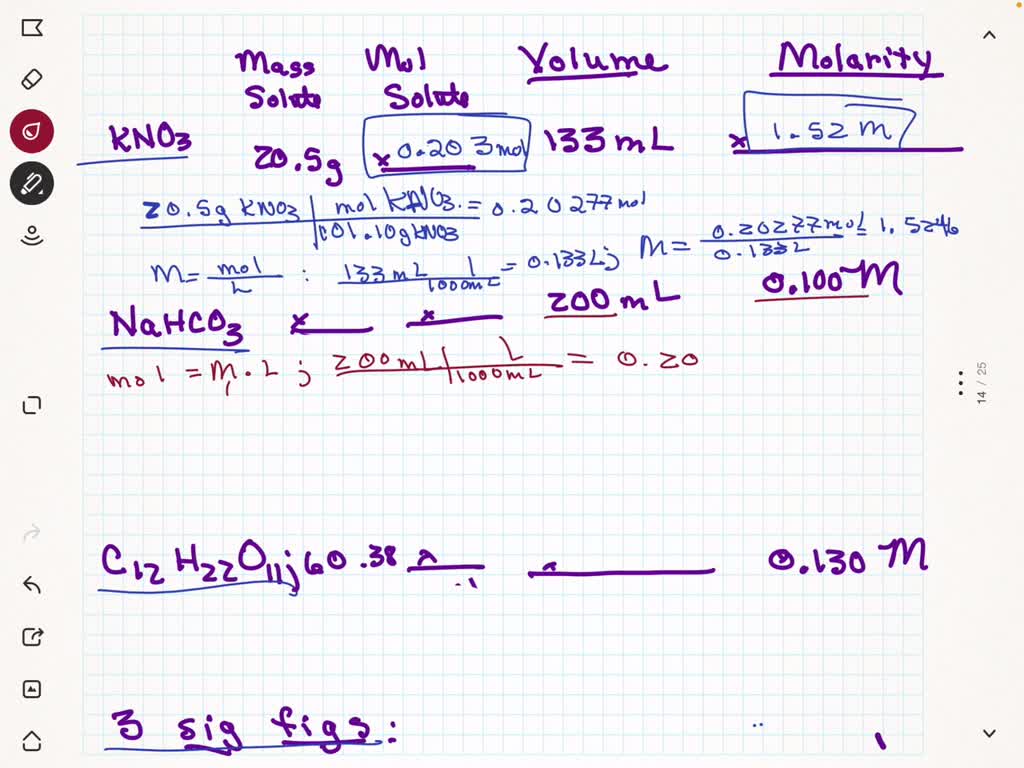 Mass Mol Volume Molarity
Solute Solute
KNO3 20.5g x 0.203 mol 133 mL x 1.52 M
20.5g KNO3 | mol KNO3 = 0.20277 mol
101.10g KNO3
M = mol/L : 133 mL | L / 1000mL = 0.133L; M = 0.20277 mol / 0.133L = 1.5246
NaHCO3 x x 200 mL 0.100 M
mol = M · L ; 200 mL | L / 1000 mL = 0.20
C12H22O11; 60.38 x x 0.130 M
3 sig figs:
14 / 25